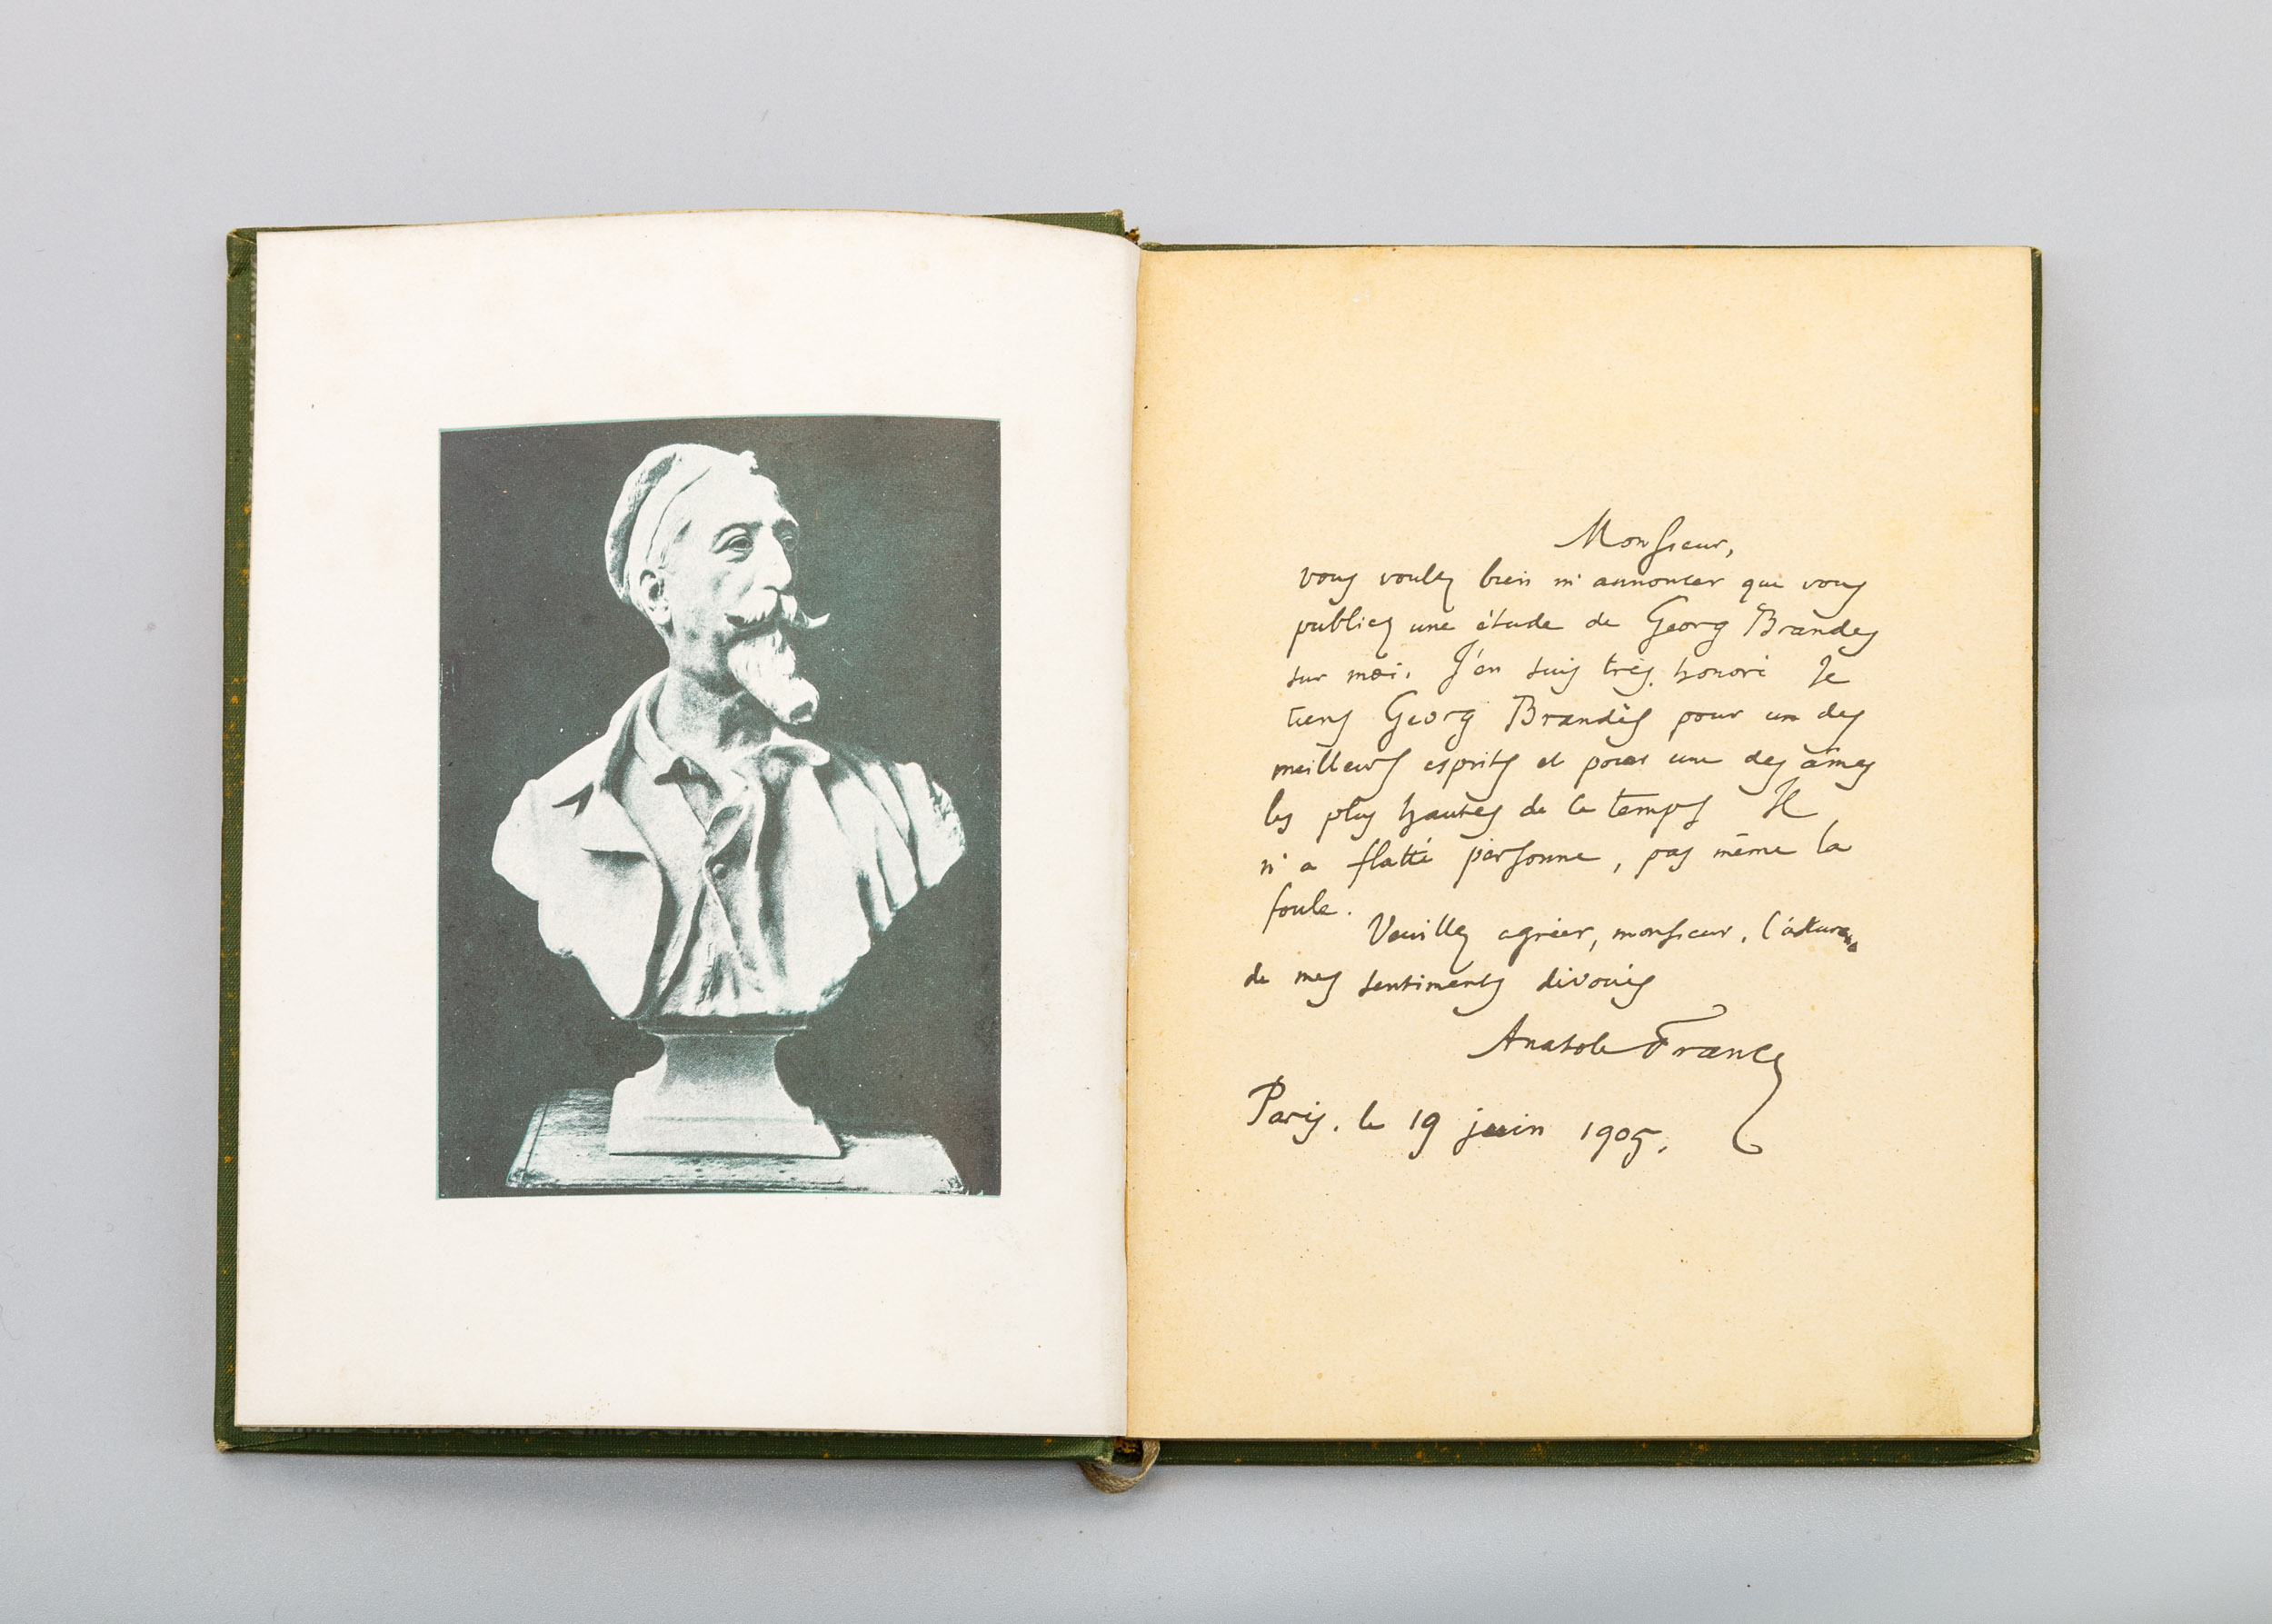 Monsieur,
vous voulez bien m'annoncer que vous
publiez une étude de Georg Brandes
sur moi. J'en suis très honoré Je
tiens Georg Brandès pour un des
meilleurs esprits et pour une des âmes
les plus hautes de ce temps Il
n'a flatté personne, pas même la
foule.
Veuillez agréer, monsieur, l'assurance
de mes sentiments dévoués
Anatole France
Paris, le 19 juin 1905.